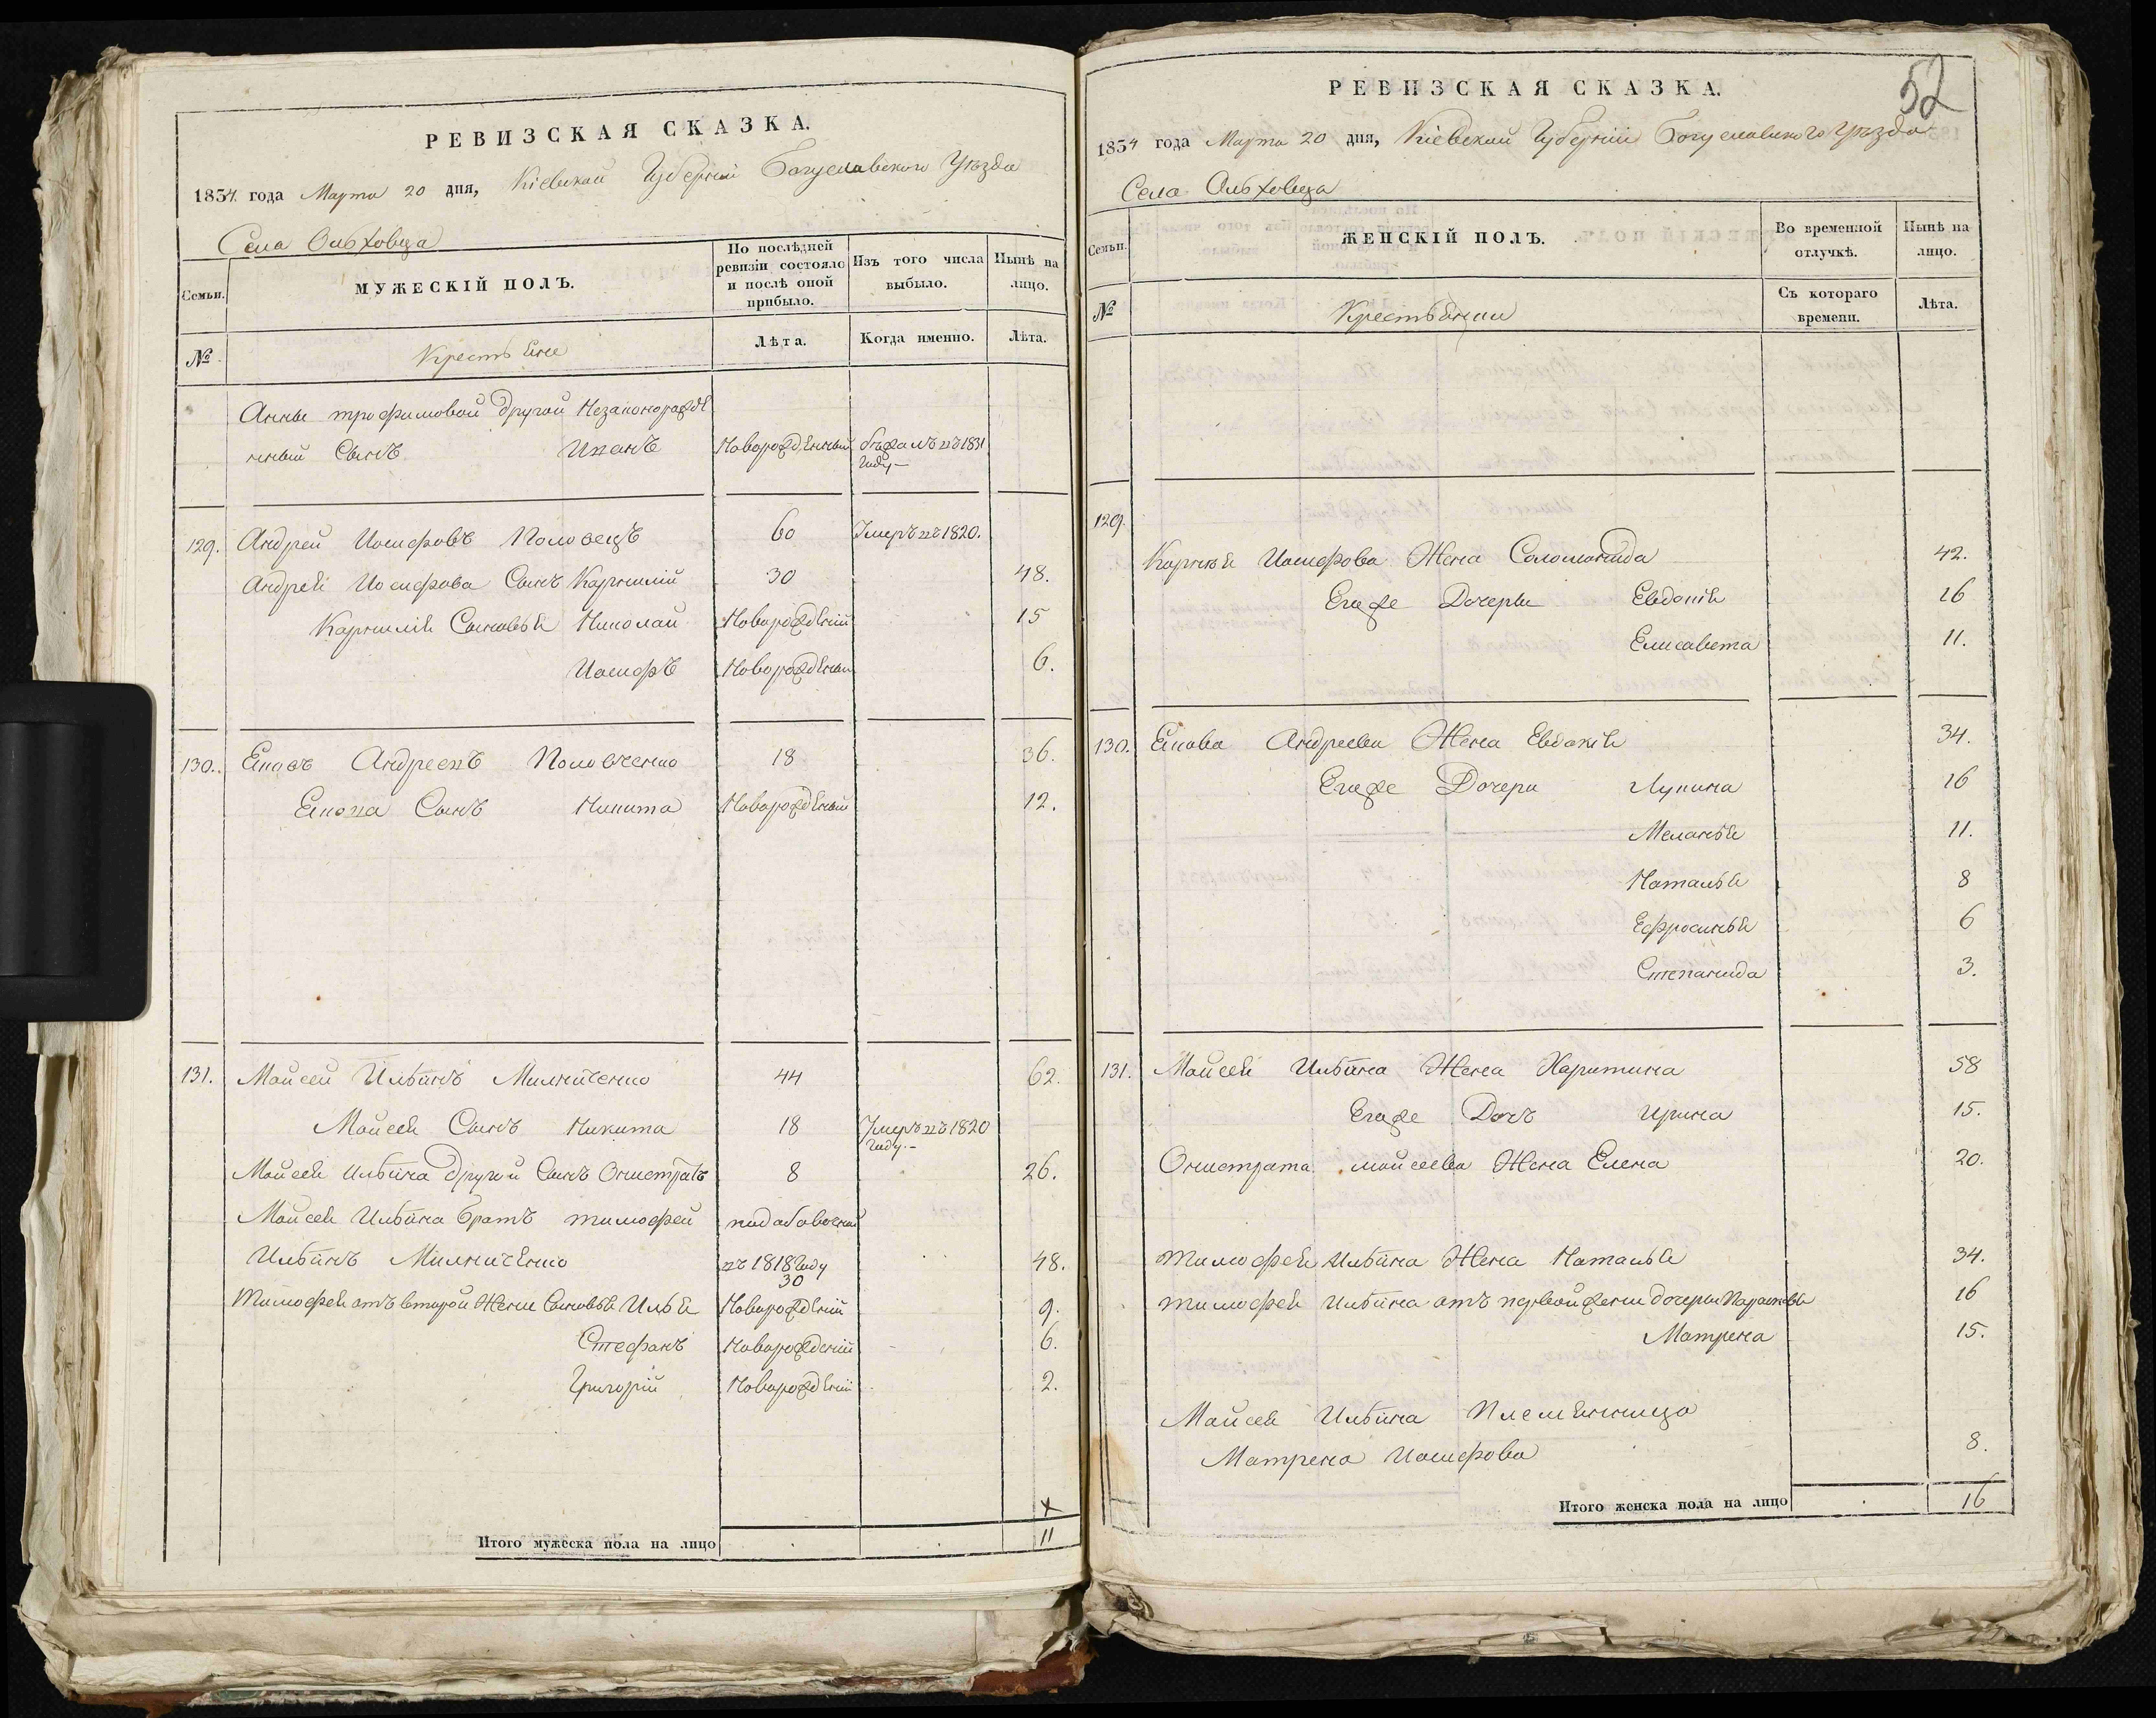 РЕВИЗСКАЯ СКАЗКА.
1834 года Марта 20 дня, Кіевской Губерніи Богуславского Уѣзда
Села Ольховца
Семьи.
МУЖЕСКІЙ ПОЛЪ.
По послѣдней ревизіи состояло и послѣ оной прибыло.
Изъ того числа выбыло.
Нынѣ на лицо.
№
Крестьяне
Лѣта.
Когда именно.
Лѣта.
Анны трофимовой другой Незаконорожде
нный Сынъ Иванъ Новорожденный бѣжалъ въ 1831
Году
129. Андрей Иосифовъ Половецъ 60 Умеръ въ 1820.
Андрея Иосифова Сынъ Корнилій 30 48.
Корнилія Сыновья Николай Новорожденій 15
Иосифъ Новорожденны 6.
130. Яковъ Андреевъ Половченко 18 36.
Якова Сынъ Никита Новорожденый 12.
131. Мойсей Ильинъ Милниченко 44 62.
Мойсея Сынъ Никита 18 Умеръ въ 1820
Году.
Мойсея Ильина другой Сынъ Онистратъ 8 26.
Мойсея Ильина братъ тимофей
Ильинъ Милниченко въ 1818 Году 48.
30
Тимофея отъ второй Жены Сыновья Илья Новорожденій 9.
Стефанъ Новорожденій 6.
Григорій Новорожденій 2.
Х
Итого мужеска пола на лицо 11
52
РЕВИЗСКАЯ СКАЗКА.
1834 года Марта 20 дня, Кіевской Губерніи Богуславского Уѣзда
Села Ольховца
Семьи.
ЖЕНСКІЙ ПОЛЪ.
Во временной отлучкѣ.
Нынѣ на лицо.
№
Крестьянки
Съ котораго времени.
Лѣта.
129.
Корнѣя Иосифова Жена Соломонида 42.
Егоже Дочеры Евдокія 16
Елисавета 11.
130. Якова Андреева Жена Евдокія 34.
Егоже Дочери Лукина 16
Меланья 11.
Наталья 8
Ефросинья 6
Степанида 3.
131. Мойсея Ильина Жена Харитина 58
Егоже Дочъ Ирина 15.
Онистрата мойсеева Жена Елена 20.
тимофея Ильина Жена Наталья 34.
тимофея Ильина отъ первой жены дочеры Парасковья 16
Матрена 15.
Мойсея Ильина Племянница
Матрена Иосифова 8.
Итого женска пола на лицо 16